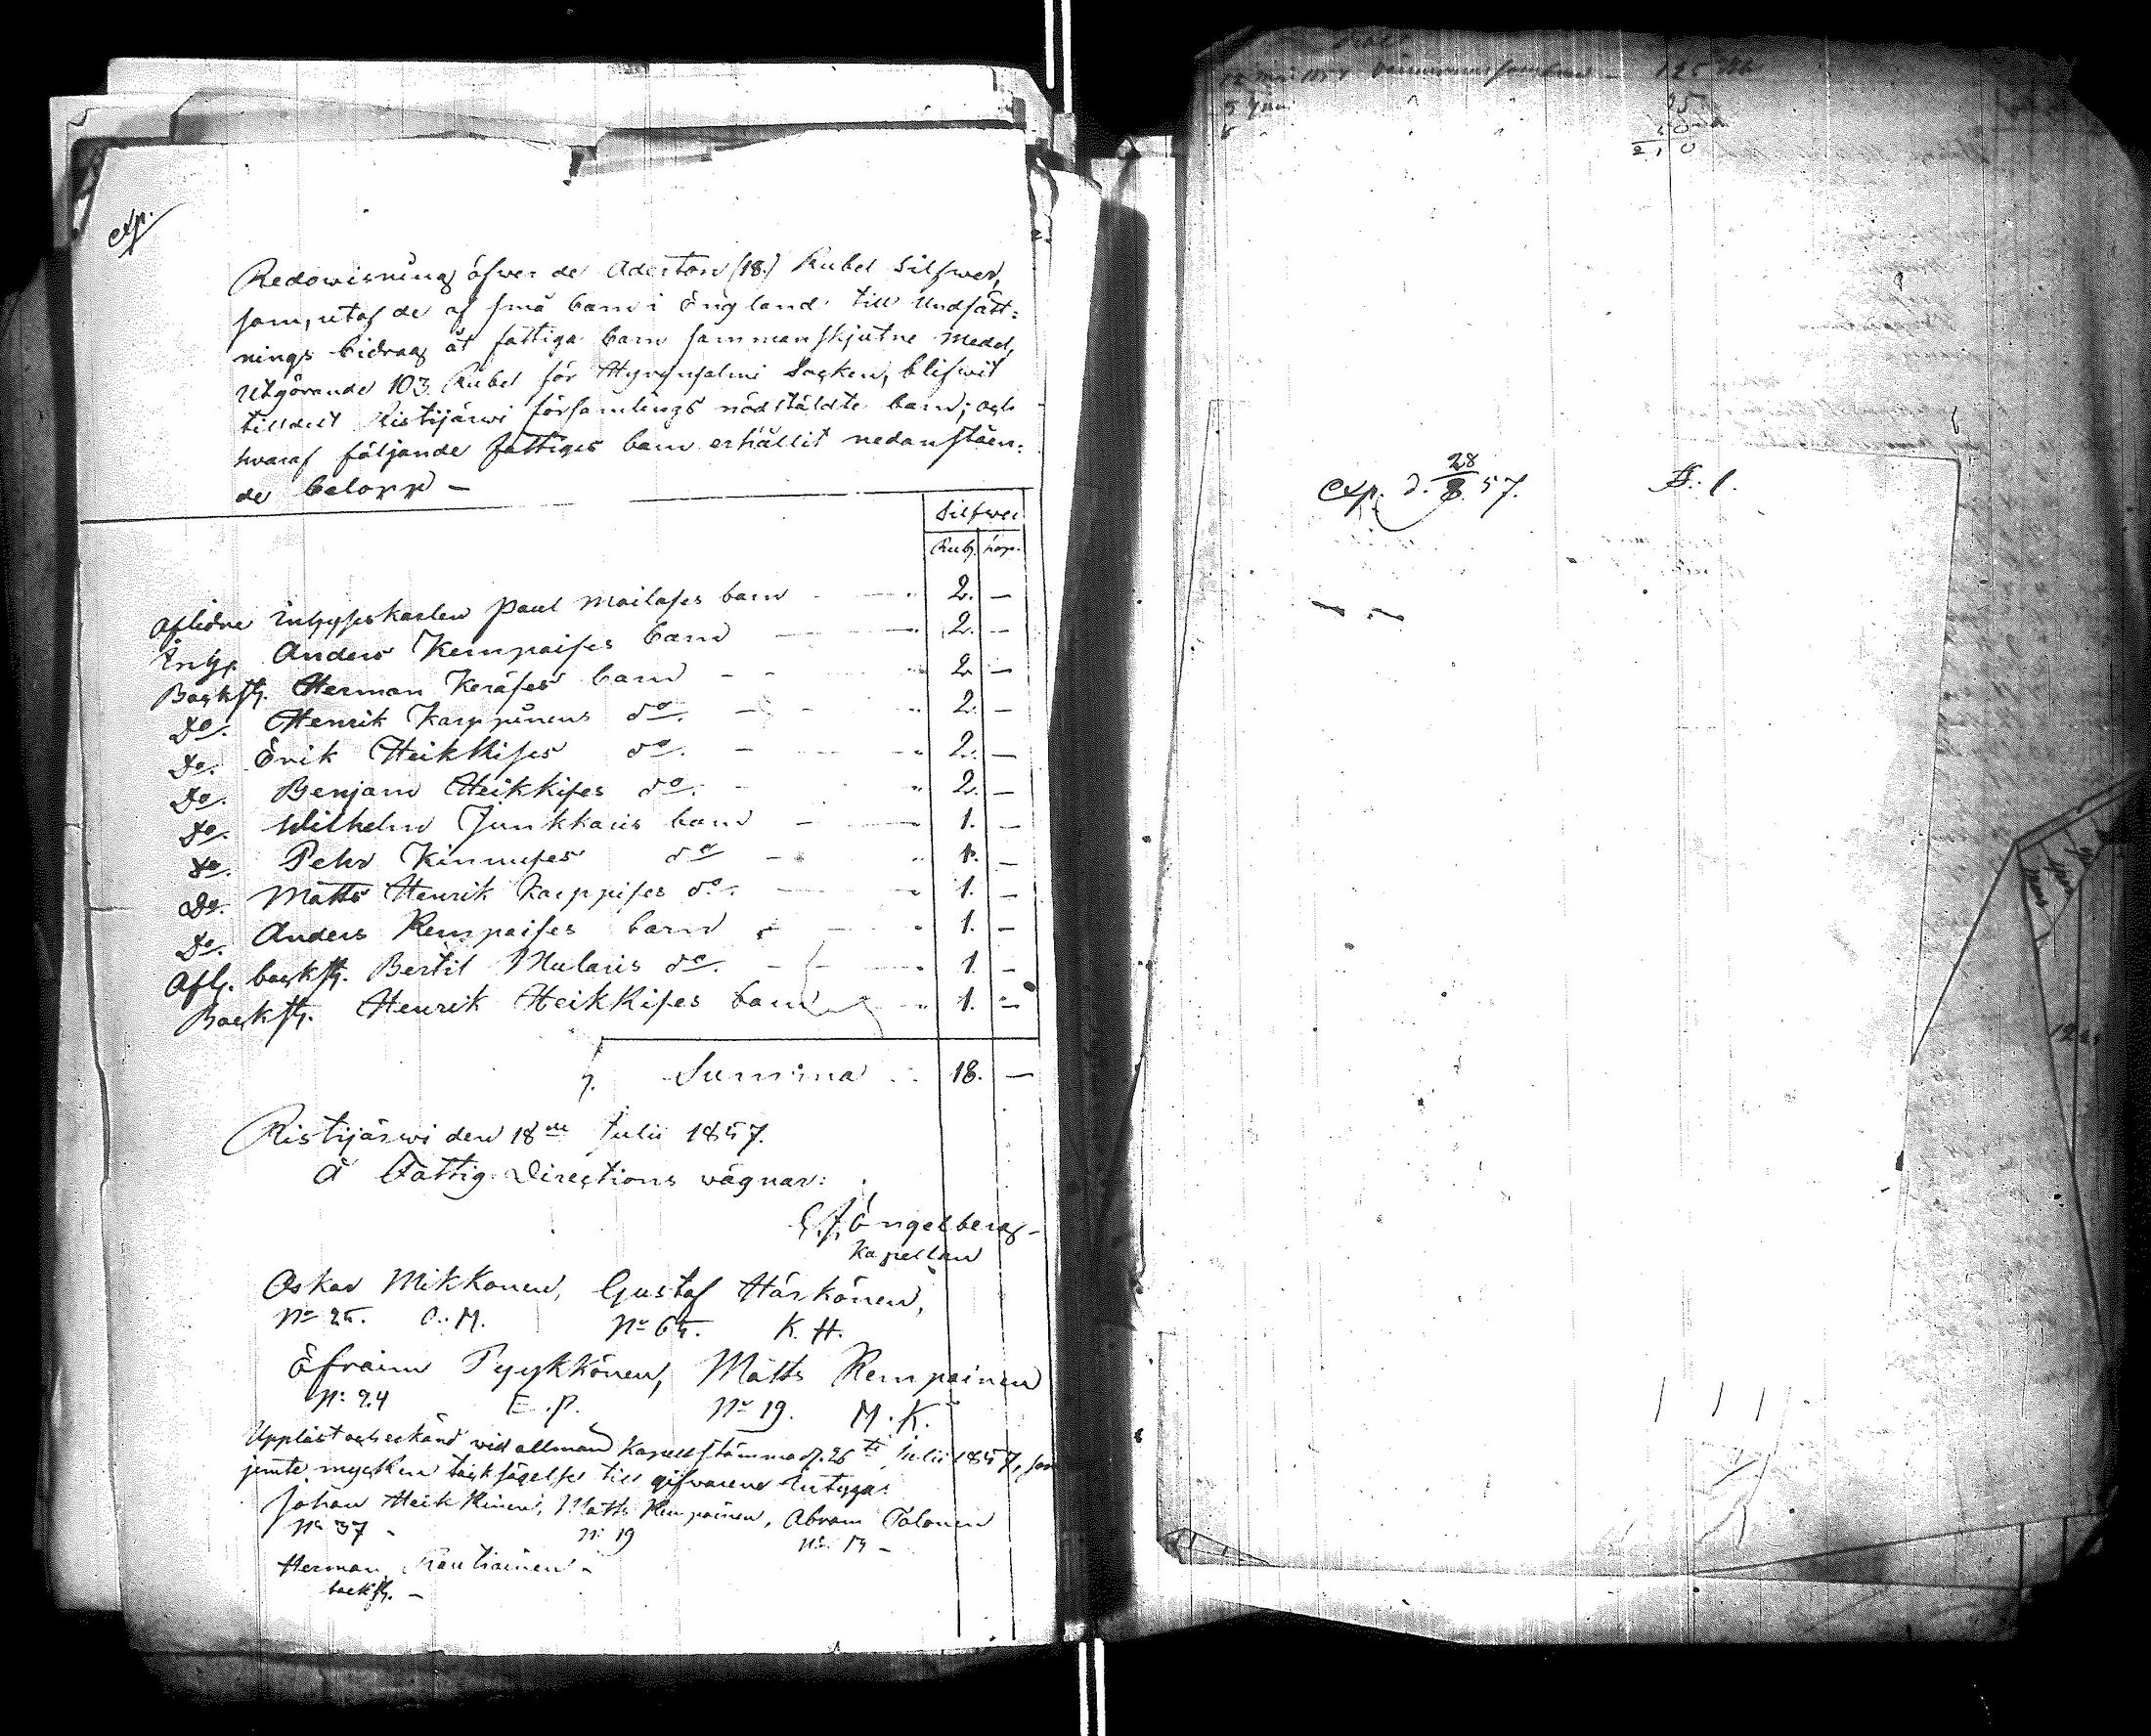 exp.
Redowisning öfwer de Aderton (18.) Rubel Silfwer,
som, utaf de af små barn i England till Undsätt-
nings bidrag åt fattiga barn sammanskjutne medel,
utgörande 103 Rubel för Hyrynsalmi Socken, blifwit
tilldelt Ristijärwi församlings nödstäldte barn; och
hwaraf följande fattiges barn erhållit nedanståen-
de belopp —
Silfwer
Rub. Kop.
Aflidne Inhyseskarlen Paul Mailases barn 2. —
Inhy. Anders Kempaises barn 2. —
Backst. Herman Keräses barn 2. —
Do. Henrik Karppinens do. 2. —
Do. Erik Heikkises do. 2. —
Do. Benjam Heikkises do. 2. —
Do. Wilhelm Junkkaris barn 1. —
Do. Pehr Kinnuses do 1. —
Do. Matts Henrik Karppises do. 1. —
Do. Anders Kempaises barn 1. —
Afl. backst. Bertil Mularis do. 1. —
Backst. Henrik Heikkises barn 1. —
Summa 18. —
Ristijärwi den 18de Julii 1857.
Å Fattig-Directions vägnar:
C. J. Engelberg
Kapellan
Oskar Mikkonen, Gustaf Härkönen,
No 25. O. M. No 65. K. H.
Efraim Pyykkönen, Matts Kempainen
No 24 E. P. No 19. M. K.
Uppläst och erkänd vid allmän Kapellstämma d. 26te Julii 1857, som
jemte mycken tacksägelse till gifvarene intyga:
Johan Heikkinen, Matts Kempainen, Abram Tolonen
No 37 No 19
Herman Rautiainen
backst. —
125
25
exp. d. 28/8. 57.